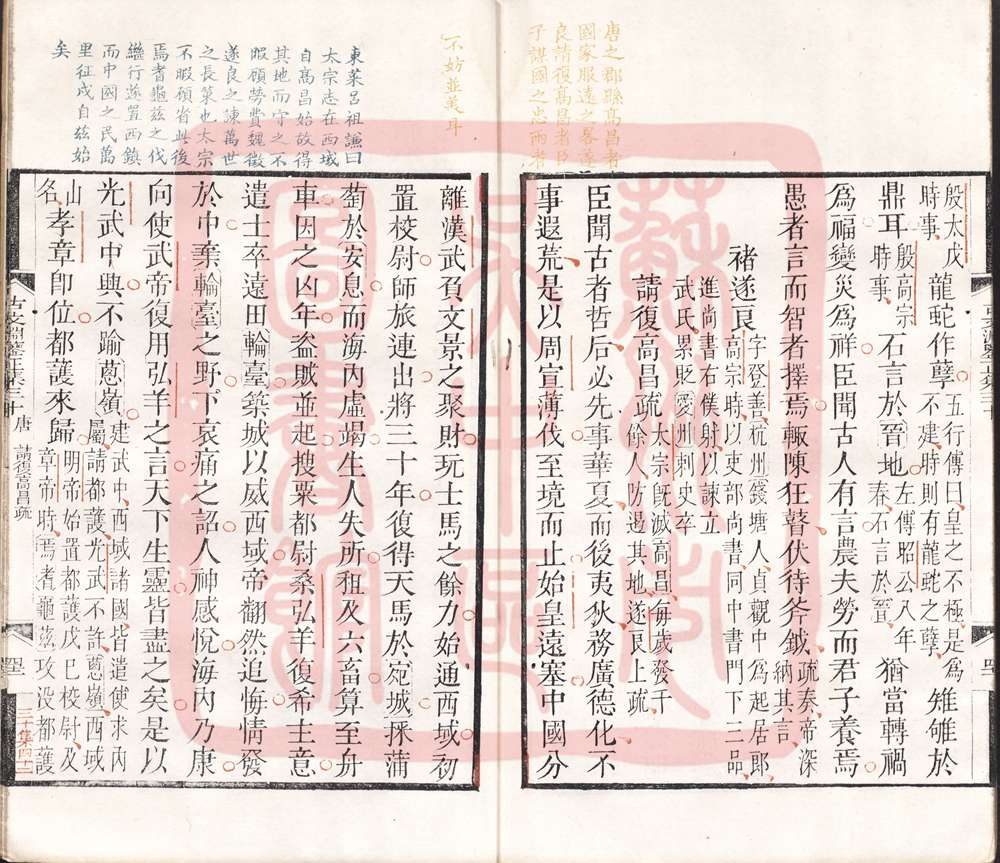 唐之郡縣高昌者
國家服遠之畧遂
良請復高昌者臣
子謀國之忠兩者
不妨並美耳
東萊呂祖謙曰
太宗志在西域
自高昌始故得
其地而守之不
暇顧勞費魏徵
遂良之諫萬世
之長策也太宗
不暇顧省此後
焉耆龜茲之伐
繼行遂置西鎮
而中國之民萬
里征戍自茲始
矣
殷太戊時事龍蛇作孽五行傳曰皇之不極是爲不建時則有龍虵之孽雉雊於
鼎耳殷高宗時事石言於晉地左傳昭公八年春石言於晉猶當轉禍
爲福變災爲祥臣聞古人有言農夫勞而君子養焉
愚者言而智者擇焉輒陳狂瞽伏待斧鉞疏奏帝深納其言
褚遂良字登善杭州錢塘人貞觀中爲起居郎高宗時以吏部尚書同中書門下三品
進尚書右僕射以諫立武氏累貶愛州刺史卒
請復高昌疏太宗既滅高昌每歲發千餘人防邊其地遂良上疏
臣聞古者哲后必先事華夏而後夷狄務廣德化不
事遐荒是以周宣薄伐至境而止始皇遠塞中國分
離漢武負文景之聚財玩士馬之餘力始通西域初
置校尉師旅連出將三十年復得天馬於宛城採蒲
萄於安息而海內虛竭生人失所租及六畜算至舟
車因之凶年盜賊並起搜粟都尉桑弘羊復希主意
遣士卒遠田輪臺築城以威西域帝翻然追悔情發
於中棄輪臺之野下哀痛之詔人神感悅海內乃康
向使武帝復用弘羊之言天下生靈皆盡之矣是以
光武中興不踰蔥嶺建武中西域諸國皆遣使求內屬請都護光武不許蔥嶺西域
山名孝章卽位都護來歸明帝始置都護戊巳校尉及章帝時焉耆龜茲攻没都護
古文淵鑒卷三十 唐 請復高昌疏